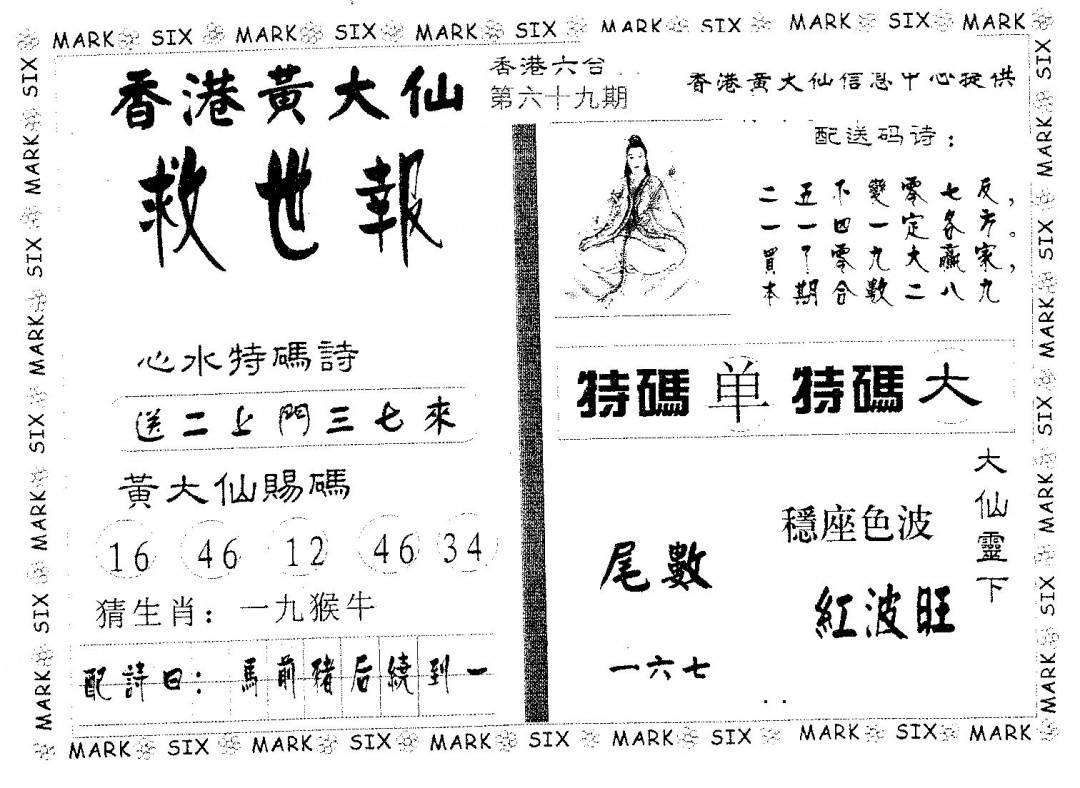 MARK SIX MARK SIX MARK SIX MARK SIX MARK SIX MARK
香港黃大仙
救世報
香港六台
第六十九期
香港黃大仙信息中心提供
配送码诗：
二五不變零七反，
一一四一定各方。
買了零九大贏家，
本期合數二八九
心水特碼詩
送二上門三七來
特碼 单 特碼 大
黃大仙賜碼
16 46 12 46 34
猜生肖：一九猴牛
配詩曰：馬前豬后繞到一
尾數
一六七
穩座色波
紅波旺
大仙靈下
SIX MARK SIX MARK SIX MARK SIX MARK
SIX MARK SIX MARK SIX MARK SIX MARK
MARK SIX MARK SIX MARK SIX MARK SIX MARK SIX MARK